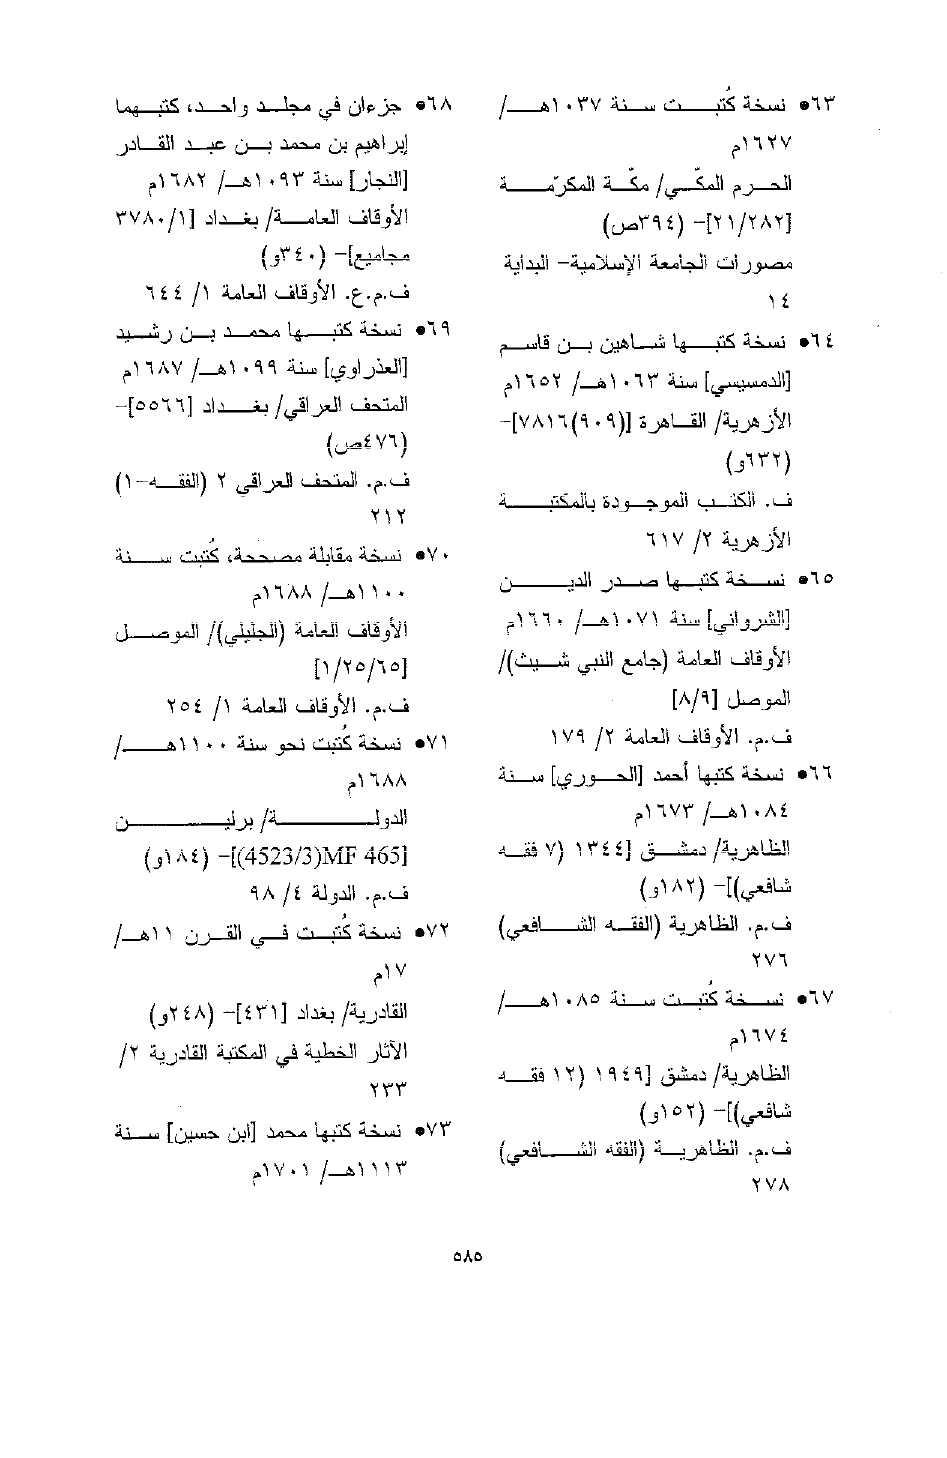 ٦٣• نسخة كُتبت سنة ١٠٣٧هـ/
١٦٢٧م
الحرم المكّي/ مكّة المكرّمة
[٢١/٢٨٢]- (٣٩٤ص)
مصورات الجامعة الإسلامية- البداية
١٤
٦٤• نسخة كتبها شاهين بن قاسم
[الدمسيسي] سنة ١٠٦٣هـ/ ١٦٥٢م
الأزهرية/ القاهرة [(٩٠٩)٧٨١٦]-
(٦٣٢و)
ف. الكتب الموجودة بالمكتبة
الأزهرية ٢/ ٦١٧
٦٥• نسخة كتبها صدر الدين
[الشرواني] سنة ١٠٧١هـ/ ١٦٦٠م
الأوقاف العامة (جامع النبي شيث)/
الموصل [٨/٩]
ف.م. الأوقاف العامة ٢/ ١٧٩
٦٦• نسخة كتبها أحمد [الحوري] سنة
١٠٨٤هـ/ ١٦٧٣م
الظاهرية/ دمشق [١٣٤٤ (٧ فقه
شافعي)]- (١٨٢و)
ف.م. الظاهرية (الفقه الشافعي)
٢٧٦
٦٧• نسخة كُتبت سنة ١٠٨٥هـ/
١٦٧٤م
الظاهرية/ دمشق [١٩٤٩ (١٢ فقه
شافعي)]- (١٥٢و)
ف.م. الظاهرية (الفقه الشافعي)
٢٧٨
٦٨• جزءان في مجلد واحد، كتبهما
إبراهيم بن محمد بن عبد القادر
[النجار] سنة ١٠٩٣هـ/ ١٦٨٢م
الأوقاف العامة/ بغداد [٣٧٨٠/١
مجاميع]- (٣٤٠و)
ف.م.ع. الأوقاف العامة ١/ ٦٤٤
٦٩• نسخة كتبها محمد بن رشيد
[العذراوي] سنة ١٠٩٩هـ/ ١٦٨٧م
المتحف العراقي/ بغداد [٥٥٦٦]-
(٤٧٦ص)
ف.م. المتحف العراقي ٢ (الفقه-١)
٢١٢
٧٠• نسخة مقابلة مصححة، كُتبت سنة
١١٠٠هـ/ ١٦٨٨م
الأوقاف العامة (الجليلي)/ الموصل
[١/٢٥/٦٥]
ف.م. الأوقاف العامة ١/ ٢٥٤
٧١• نسخة كُتبت نحو سنة ١١٠٠هـ/
١٦٨٨م
الدولة/ برلين
[4523/3)MF 465)]- (١٨٤و)
ف.م. الدولة ٤/ ٩٨
٧٢• نسخة كُتبت في القرن ١١هـ/
١٧م
القادرية/ بغداد [٤٣١]- (٢٤٨و)
الآثار الخطية في المكتبة القادرية ٢/
٢٣٣
٧٣• نسخة كتبها محمد [ابن حسين] سنة
١١١٣هـ/ ١٧٠١م
٥٨٥